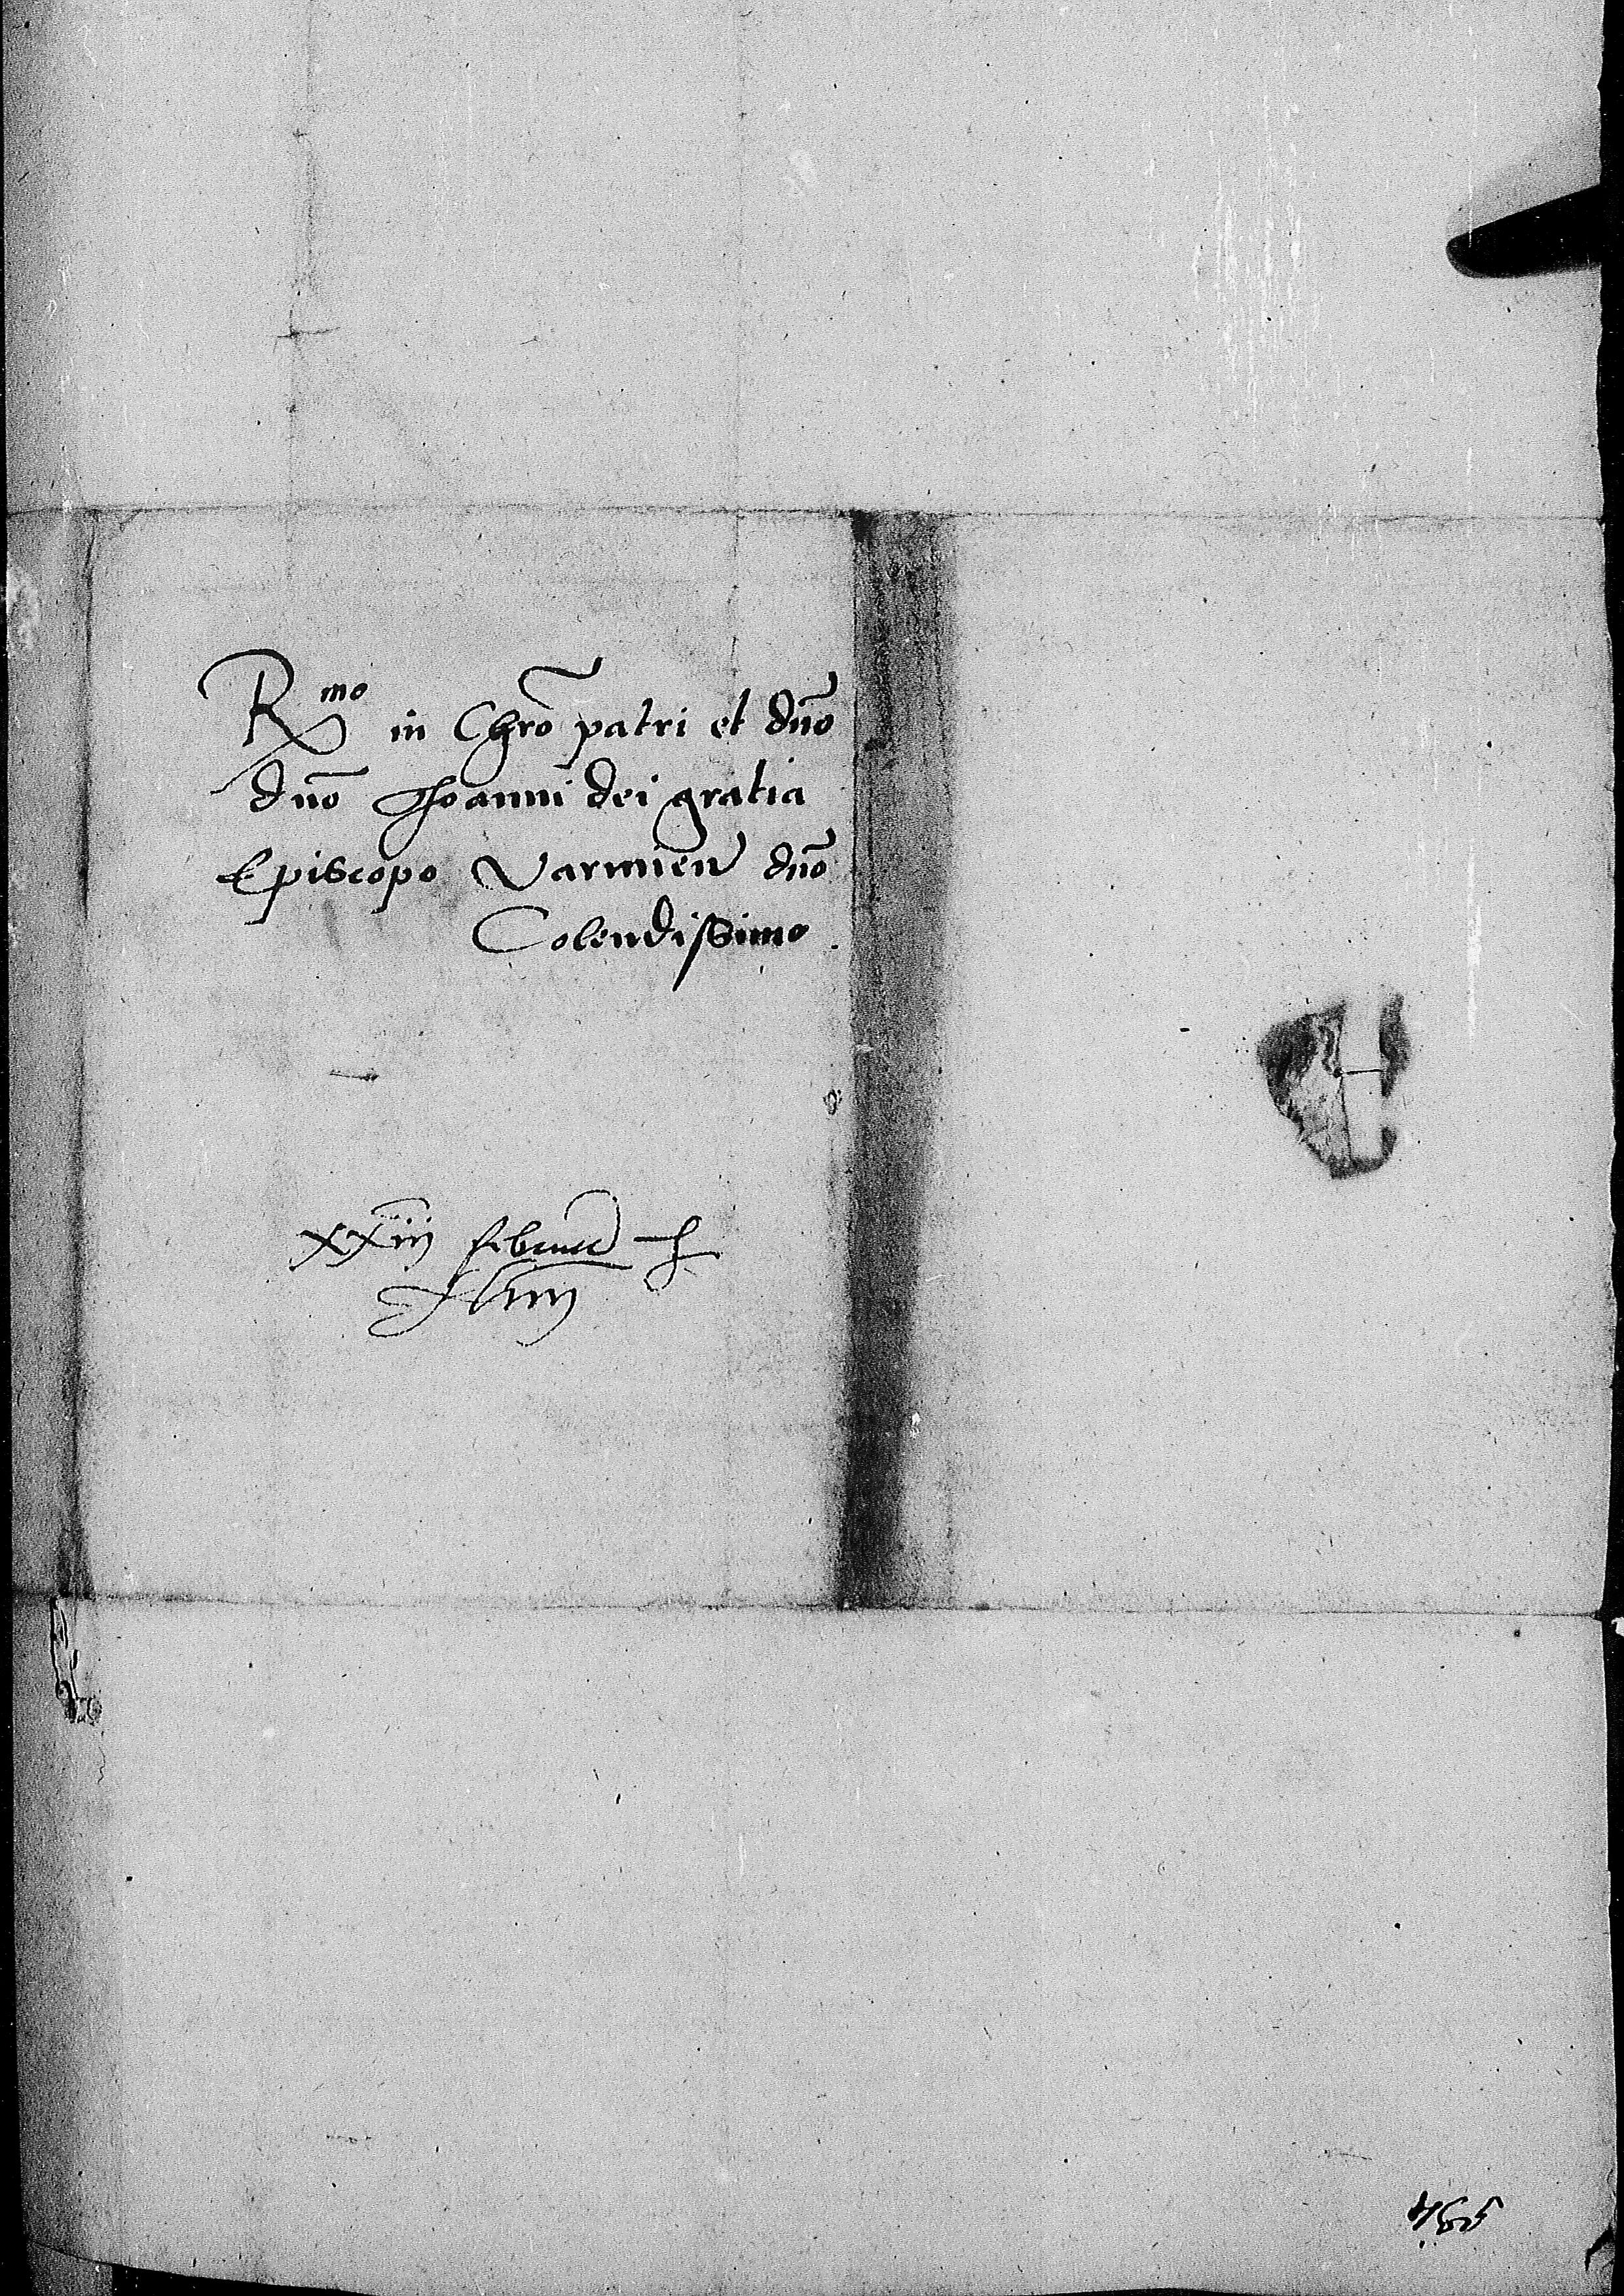 R^mo in Chr̄o patri et dn̄o
dn̄o Joanni dei gratia
Episcopo Varmien̄ dn̄o
Colendissimo.
xxiii